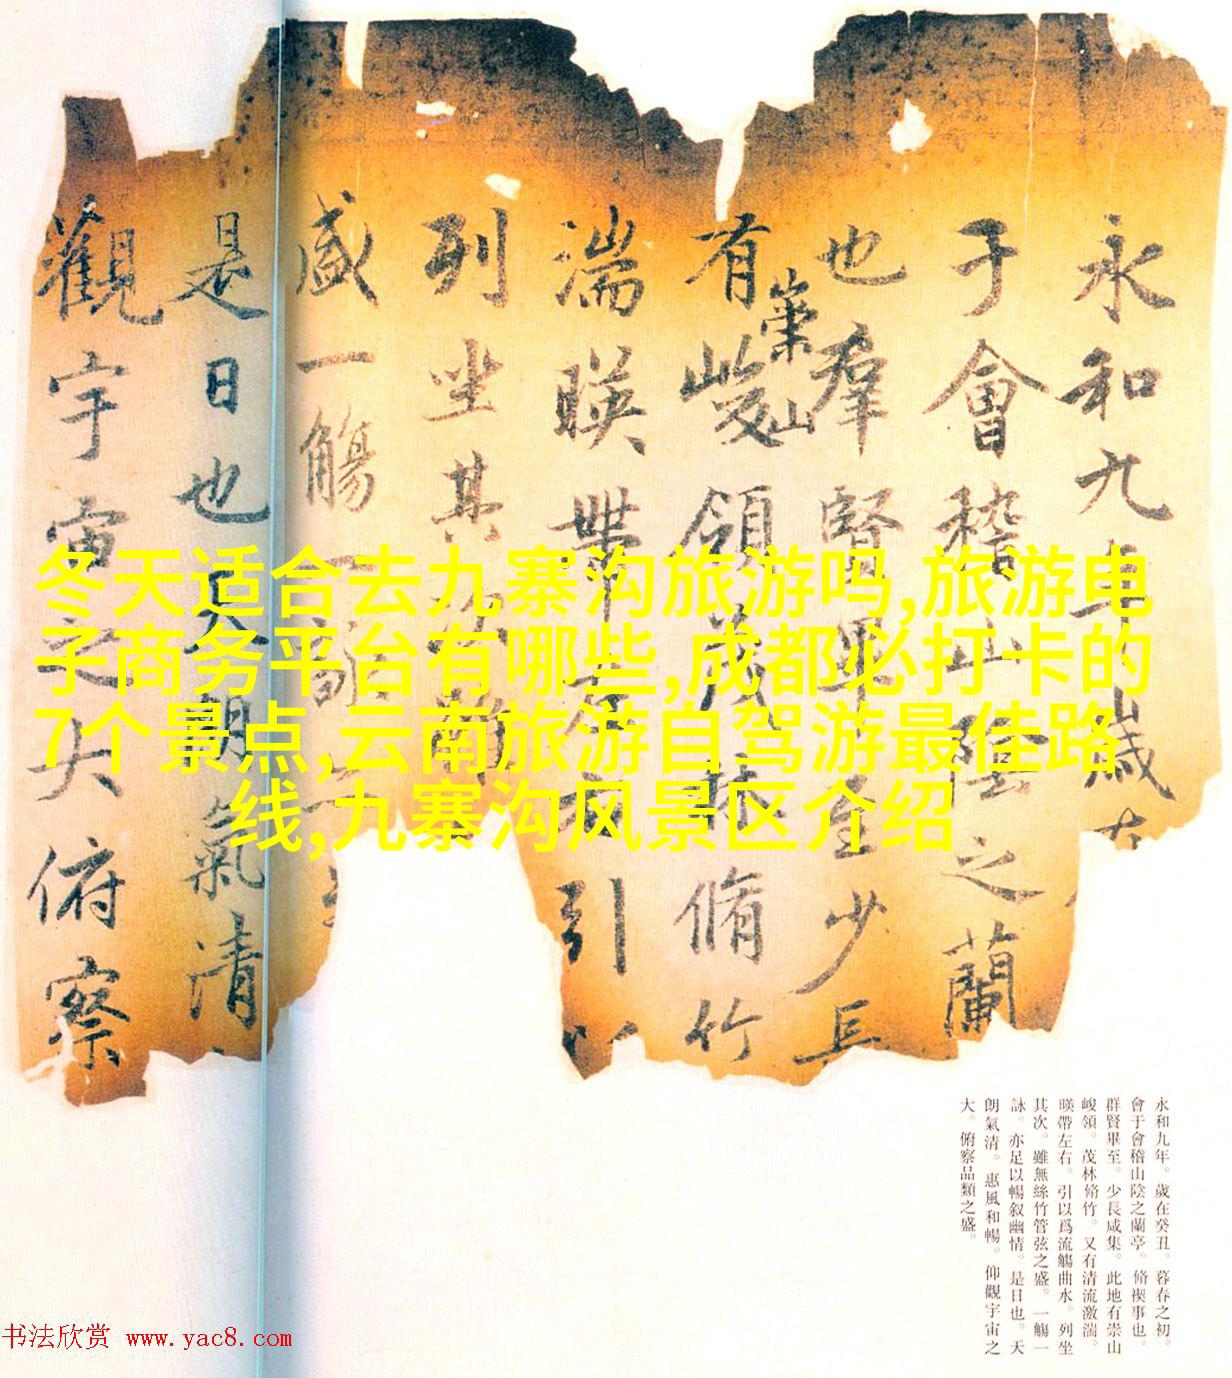 永和九年歲在
于會稽山陰之蘭
也羣賢畢至少長
有崇山峻領茂林脩竹
湍暎帶左右引以
列坐其次
盛一觴一詠
是日也天朗氣清
觀宇宙之大俯察
冬天适合去九寨沟旅游吗,旅游电
子商务平台有哪些,成都必打卡的
7个景点,云南旅游自驾游最佳路
线,九寨沟风景区介绍
永和九年。歲在癸丑。暮春之初。
會于會稽山陰之蘭亭。脩禊事也。
群賢畢至。少長咸集。此地有崇山
峻領。茂林脩竹。又有清流激湍。
暎帶左右。引以爲流觴曲水。列坐
其次。雖無絲竹管弦之盛。一觴一
詠。亦足以暢叙幽情。是日也。天
朗氣清。惠風和暢。仰觀宇宙之
大。俯察品類之盛。
书法欣赏 www.yac8.com